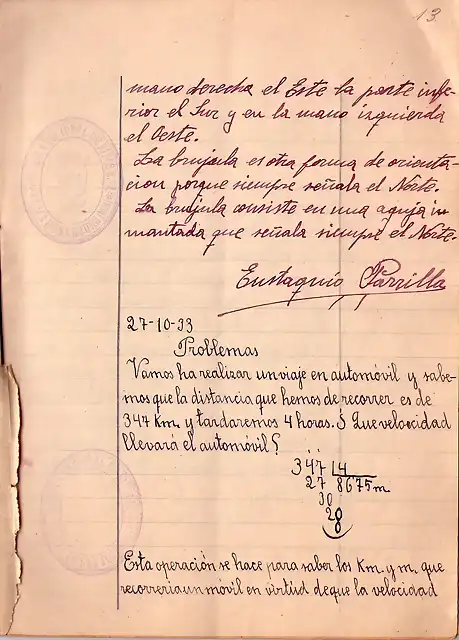 13
mano derecha el Este la parte infe-
rior el Sur y en la mano izquierda
el Oeste.
La brujula es otra forma de orienta-
cion porque siempre señala el Norte.
La brujula consiste en una aguja in-
mantada que señala siempre el Norte.
Eustaquio Parrilla
27-10-33
Problemas
Vamos ha realizar un viaje en automóvil y sabe-
mos que la distancia que hemos de recorrer es de
347 Km. y tardaremos 4 horas. ¿Que velocidad
llevará el automóvil?
347 4
27 8675 m.
30
28
0
Esta operación se hace para saber los Km. y m. que
recorreria un móvil en virtud de que la velocidad